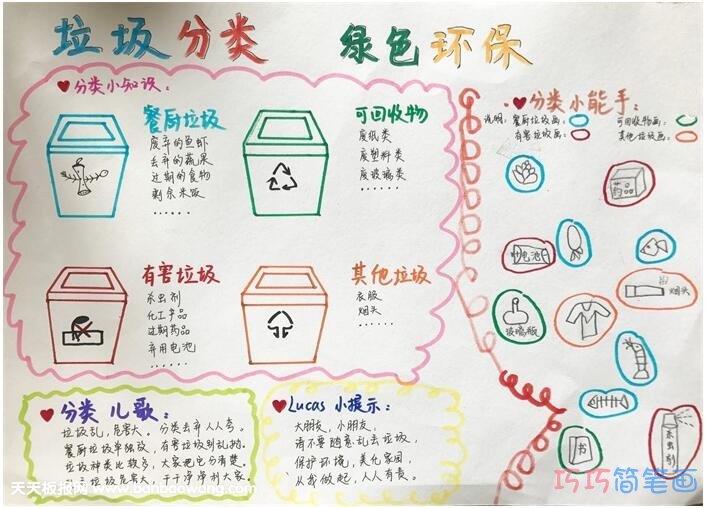 垃圾分类 绿色环保
分类小知识：
餐厨垃圾
废弃的鱼虾
丢弃的蔬果
过期的食物
剩余米饭
......
可回收物
废纸类
废塑料类
废玻璃类
......
有害垃圾
杀虫剂
化工产品
过期药品
弃用电池
......
其他垃圾
衣服
烟头
......
分类小能手：
说明：餐厨垃圾画： 可回收物画：
有害垃圾画： 其他垃圾画：
药
电池
烟头
玻璃瓶
书
杀虫剂
分类儿歌：
垃圾乱，危害大。分类丢弃人人夸。
餐厨垃圾单独放，有害垃圾别乱抛。
垃圾种类比较多，大家把它分清楚。
垃圾危害大，干干净净利大家。
Lucas 小提示：
大朋友，小朋友，
请不要随意乱丢垃圾，
保护环境，美化家园，
从我做起，人人有责。
天天板报网 www.banbaowang.com
巧巧简笔画